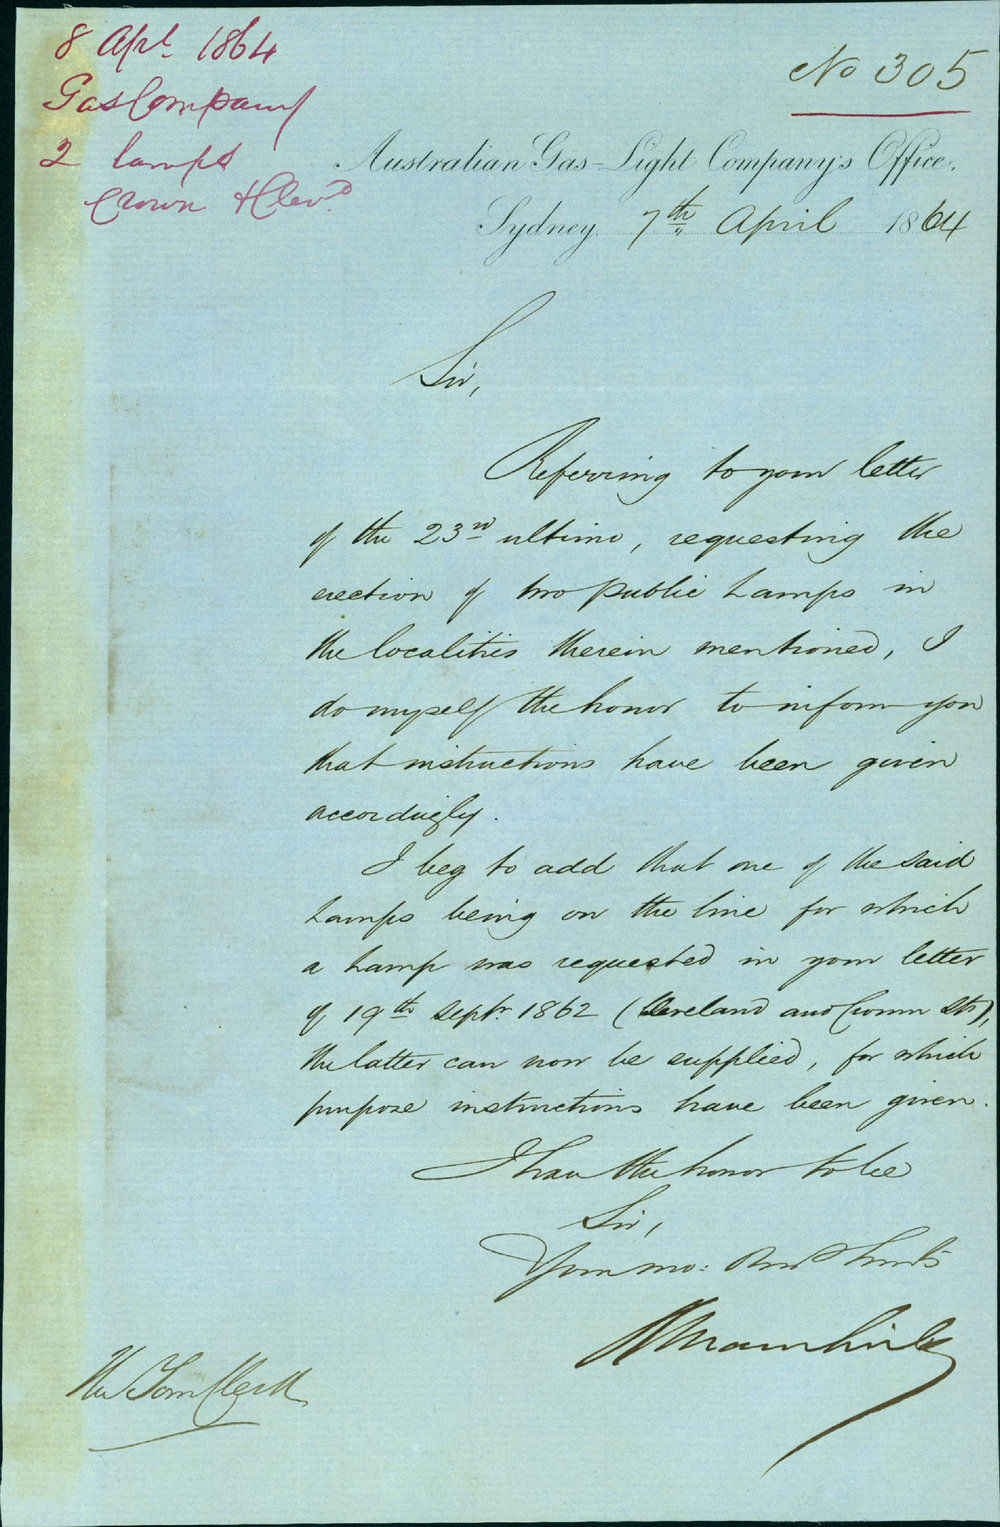 8 Apl. 1864
Gas Company
2 lamps
Crown & Clevd.
No 305
Australian Gas-Light Company's Office,
Sydney 7th April 1864
Sir,
Referring to your letter
of the 23rd ultimo, requesting the
erection of two public Lamps in
the localities therein mentioned, I
do myself the honor to inform you
that instructions have been given
accordingly.
I beg to add that one of the said
Lamps being on the line for which
a Lamp was requested in your letter
of 19th Septr. 1862 (Cleveland and Crown Sts),
the latter can now be supplied, for which
purpose instructions have been given.
I have the honor to be
Sir,
Your mo: Obt Servt
The Town Clerk